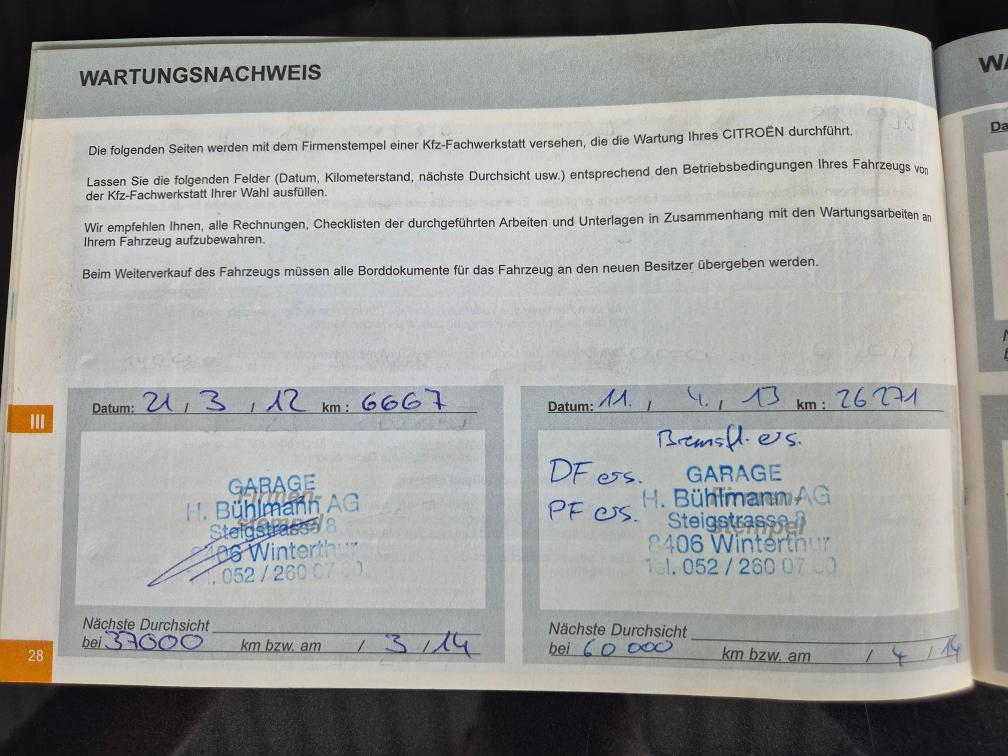 WARTUNGSNACHWEIS
Die folgenden Seiten werden mit dem Firmenstempel einer Kfz-Fachwerkstatt versehen, die die Wartung Ihres CITROËN durchführt.
Lassen Sie die folgenden Felder (Datum, Kilometerstand, nächste Durchsicht usw.) entsprechend den Betriebsbedingungen Ihres Fahrzeugs von
der Kfz-Fachwerkstatt Ihrer Wahl ausfüllen.
Wir empfehlen Ihnen, alle Rechnungen, Checklisten der durchgeführten Arbeiten und Unterlagen in Zusammenhang mit den Wartungsarbeiten an
Ihrem Fahrzeug aufzubewahren.
Beim Weiterverkauf des Fahrzeugs müssen alle Borddokumente für das Fahrzeug an den neuen Besitzer übergeben werden.
III
Datum: 21 / 3 / 12 km : 6667
Firmen-
stempel
GARAGE
H. Bühlmann AG
Steigstrasse 8
8406 Winterthur
Tel. 052 / 260 07 80
Nächste Durchsicht
bei 37000 km bzw. am / 3 / 14
Datum: 11. / 4. / 13 km : 26271
Bremsfl. ers.
DF ers.
PF ers.
Firmen-
stempel
GARAGE
H. Bühlmann AG
Steigstrasse 8
8406 Winterthur
Tel. 052 / 260 07 80
Nächste Durchsicht
bei 60 000 km bzw. am / 4 / 14
28